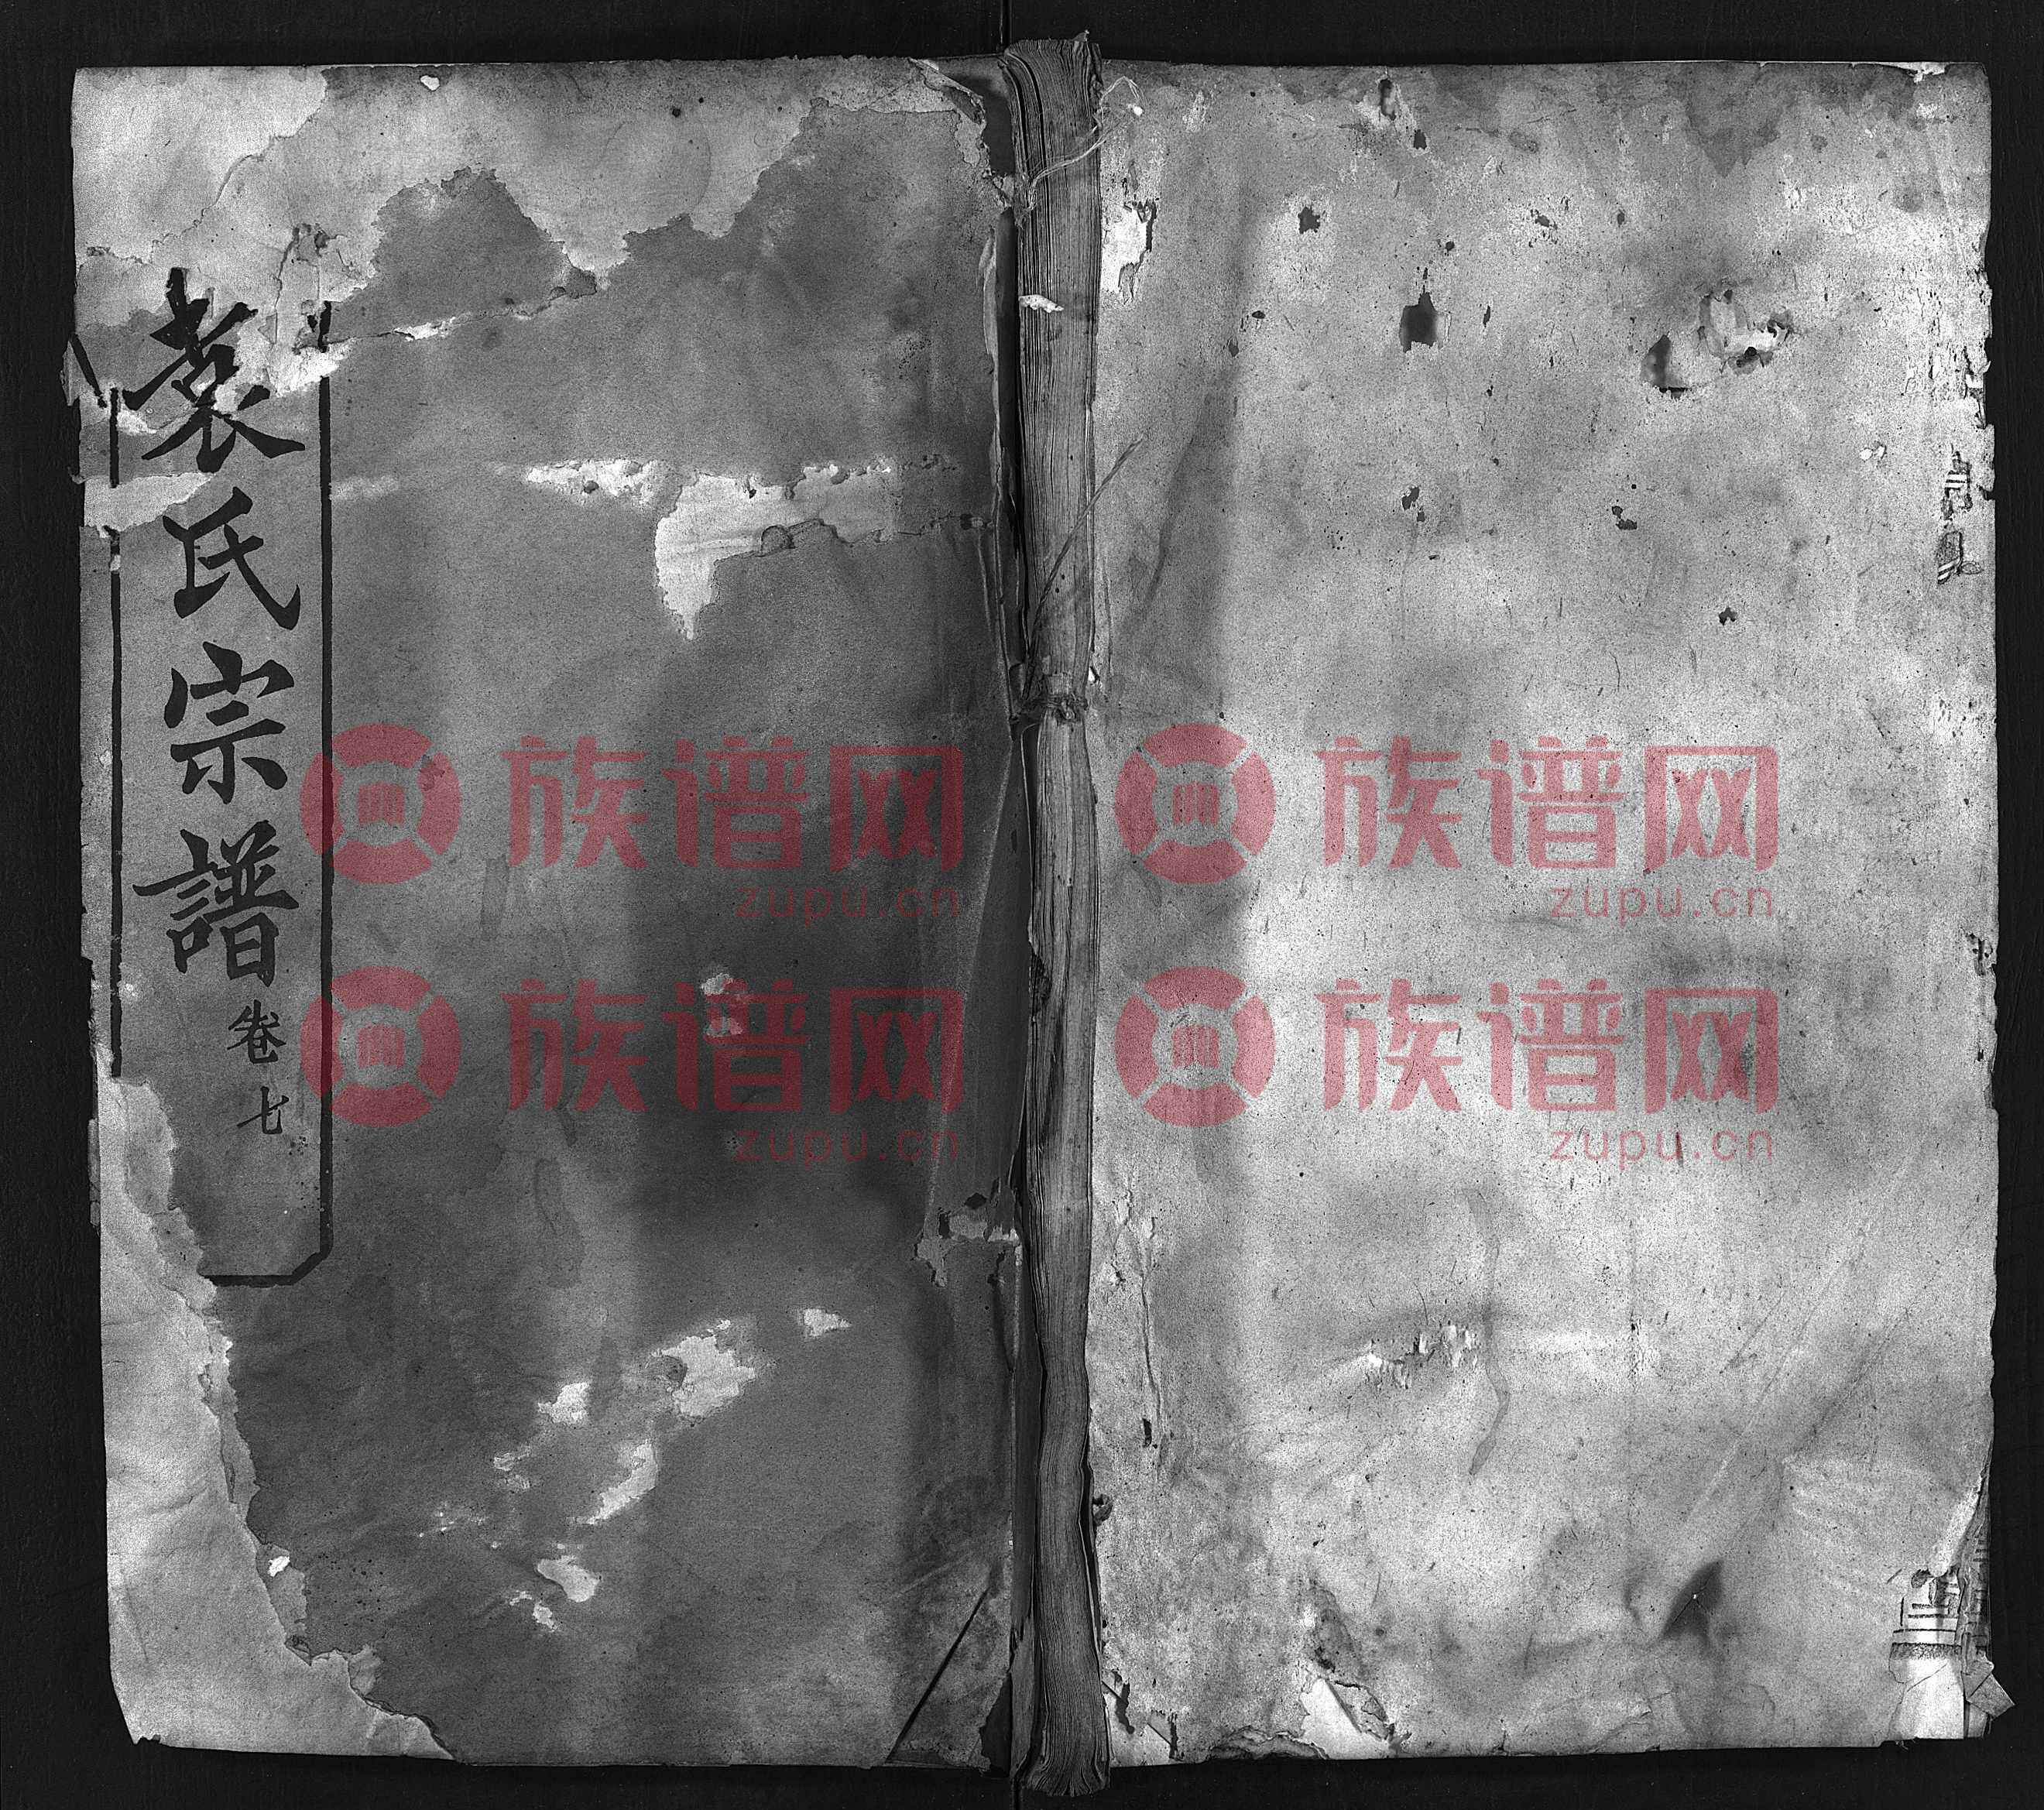 袁氏宗譜
卷七
族谱网
zupu.cn
族谱网
zupu.cn
族谱网
zupu.cn
族谱网
zupu.cn